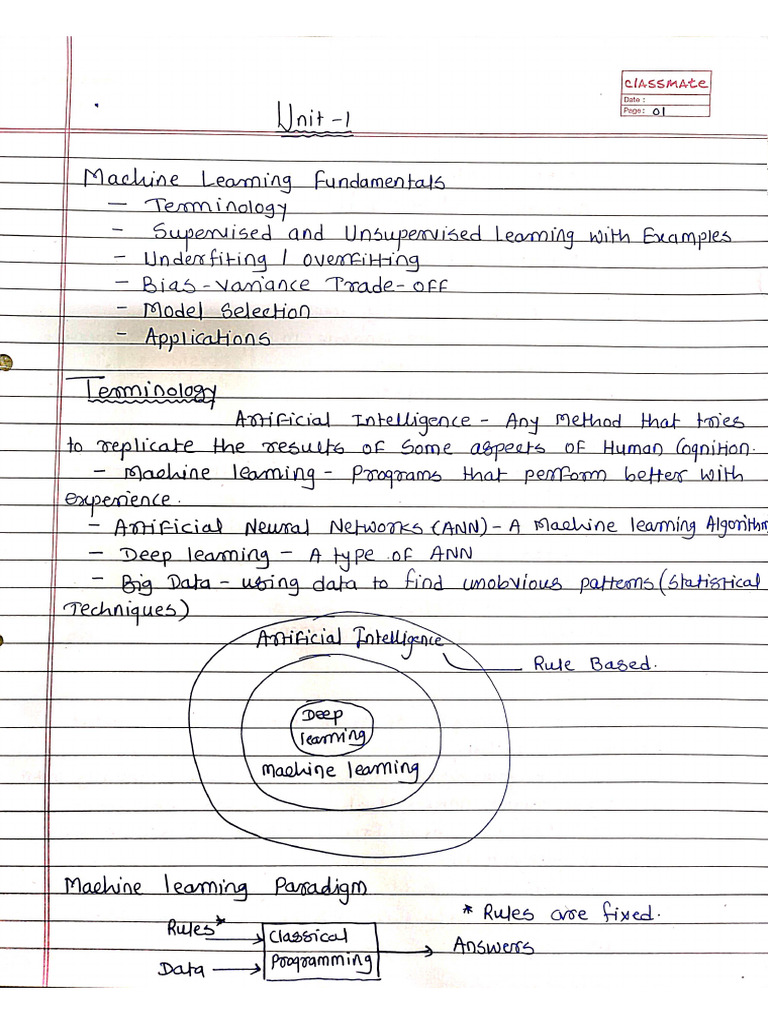 classmate
Date :
Page: 01
Unit -1
Machine Learning Fundamentals
— Terminology
- Supervised and Unsupervised Learning with Examples
- Underfiting / overfitting
- Bias-variance Trade-off
- Model Selection
- Applications
Terminology
Artificial Intelligence - Any Method that tries
to replicate the results of some aspects of Human Cognition.
- Machine learning - Programs that perform better with
experience.
- Artificial Neural Networks (ANN) - A Machine learning Algorithm
- Deep learning - A type of ANN
- Big Data - using data to find unobvious patterns (Statistical
Techniques)
Artificial Intelligence
Rule Based.
Deep
learning
Machine learning
Machine learning Paradigm
* Rules are fixed.
Rules*
Classical
Programming
Answers
Data